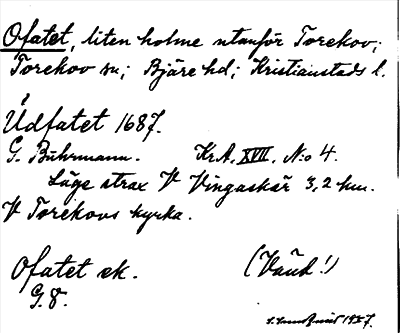 Ofatet, liten holme utanför Torekov;
Torekov sn; Bjäre hd; Kristianstads l.
Údfatet 1687.
G. Buhrmann. Kr.A. XVII. N:o 4.
Läge strax V Vingaskär 3,2 km.
V Torekovs kyrka.
Ofatet ek.
G.8.
(Vänd!)
1957.